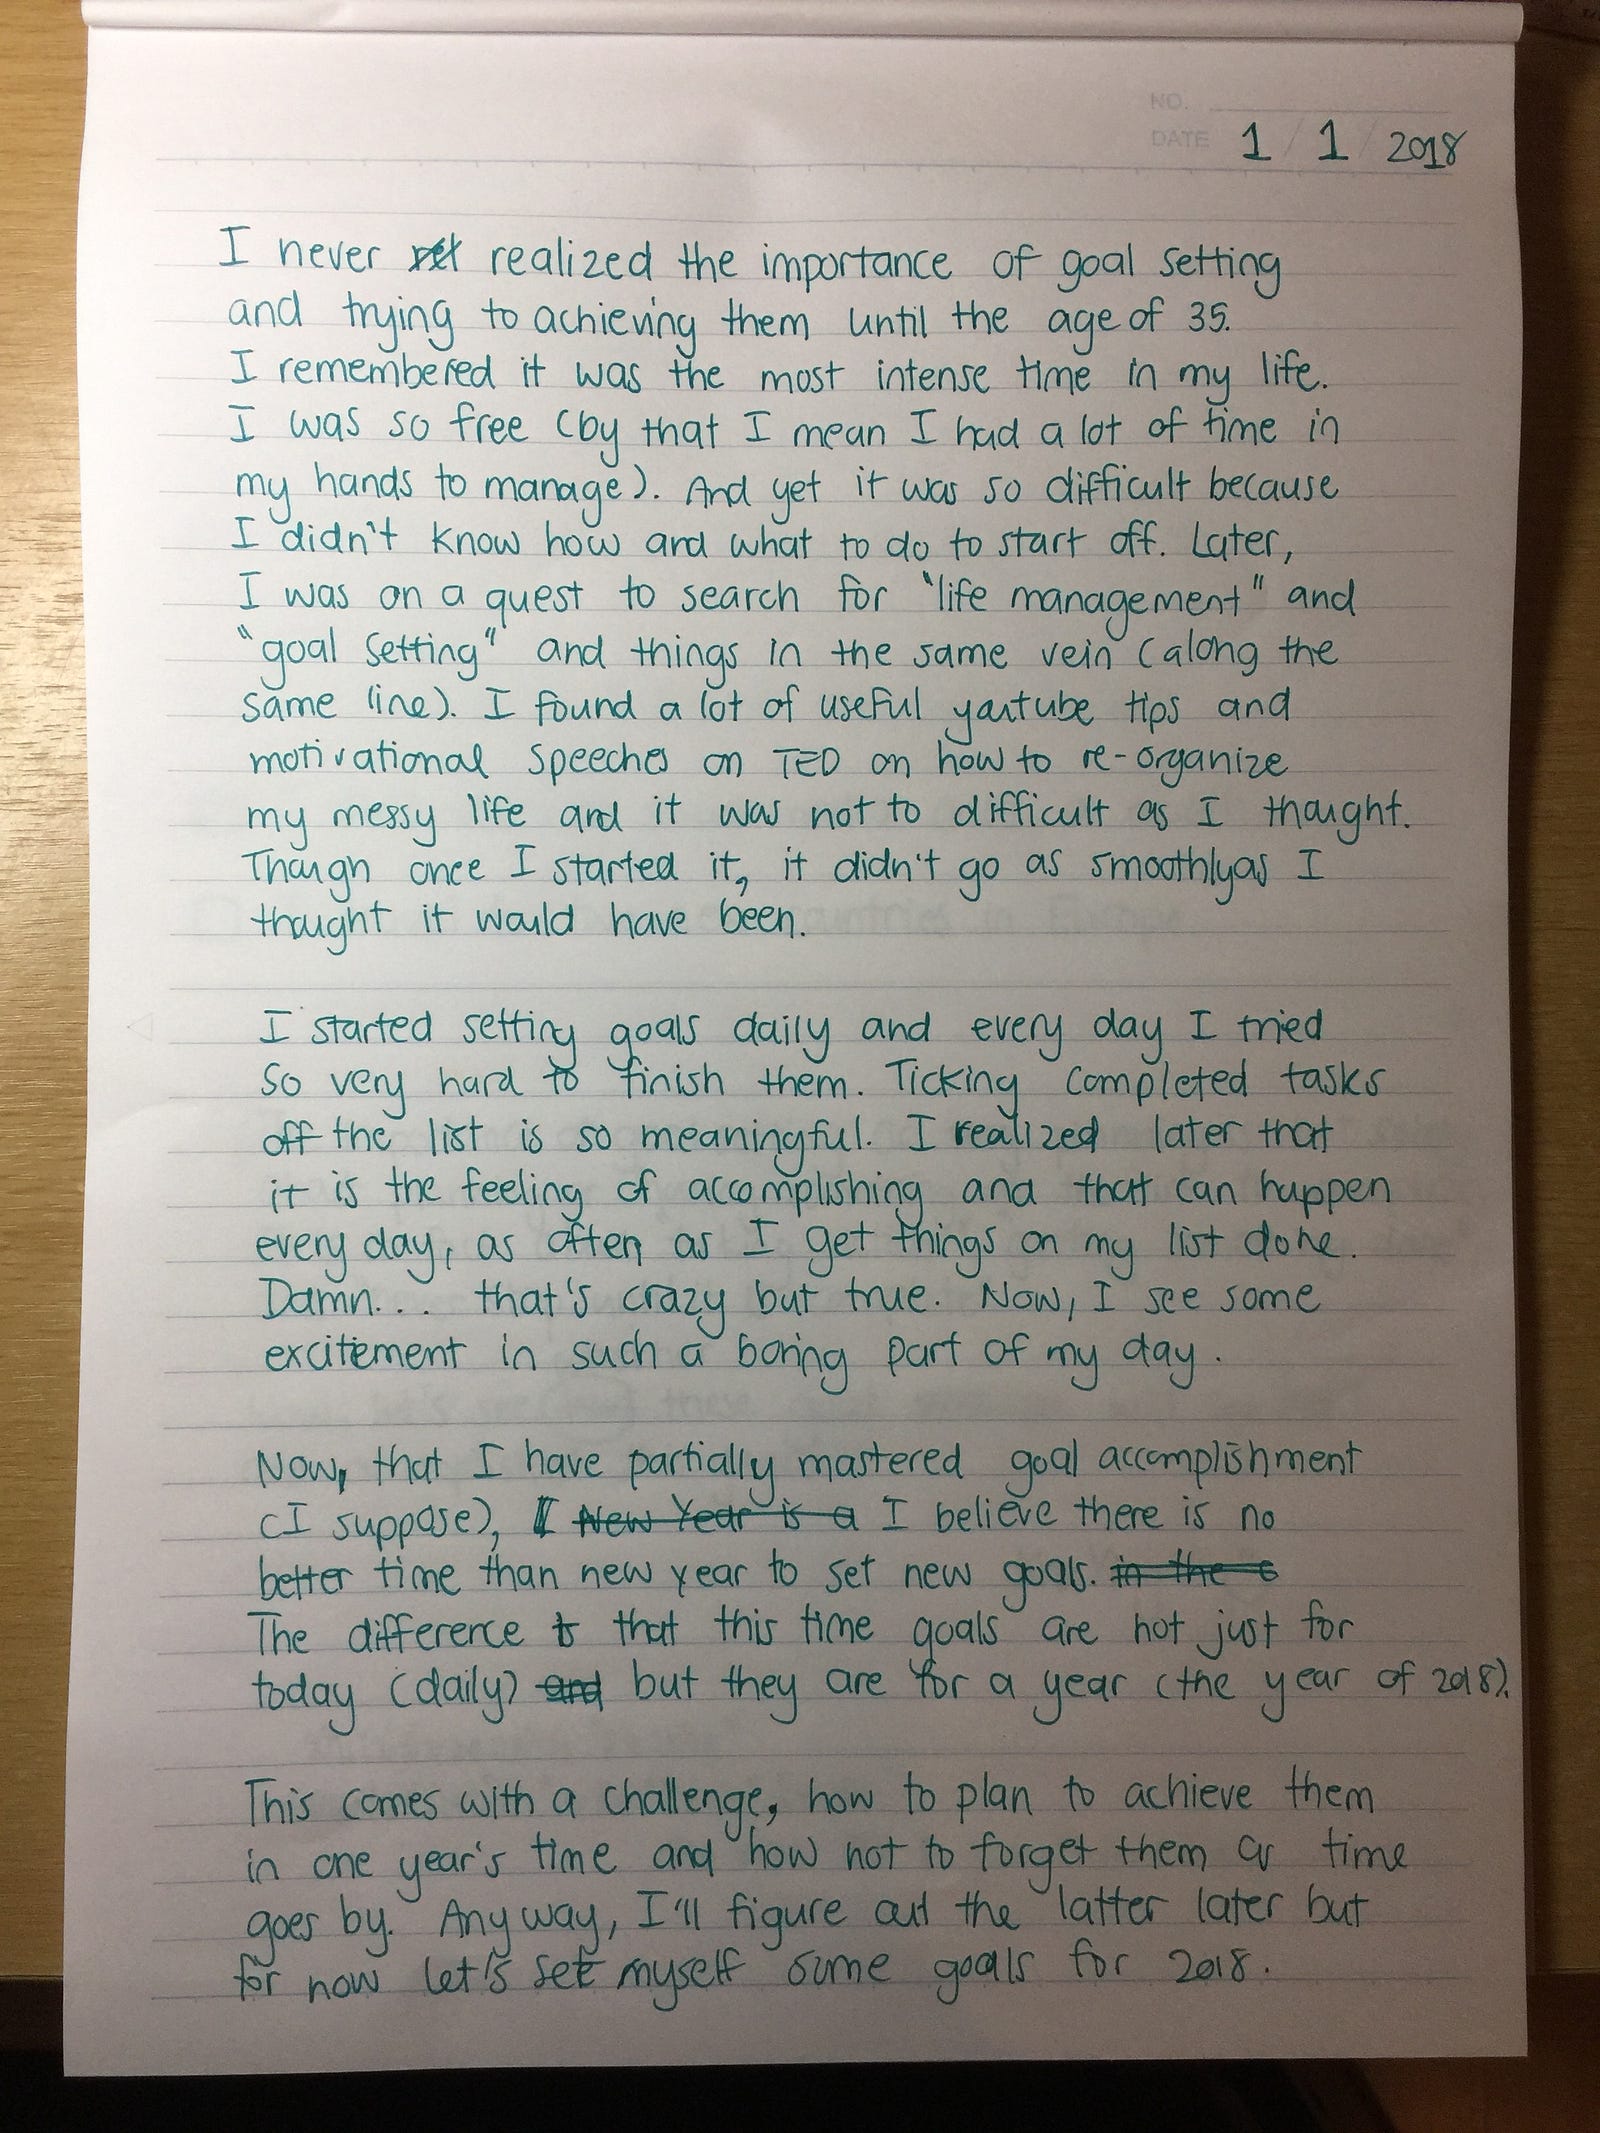 NO.
DATE 1 / 1 / 2018
I never realized the importance of goal setting
and trying to achieving them until the age of 35.
I remembered it was the most intense time in my life.
I was so free (by that I mean I had a lot of time in
my hands to manage). And yet it was so difficult because
I didn't know how and what to do to start off. Later,
I was on a quest to search for "life management" and
"goal setting" and things in the same vein (along the
same line). I found a lot of useful youtube tips and
motivational speeches on TED on how to re-organize
my messy life and it was not to difficult as I thought.
Though once I started it, it didn't go as smoothly as I
thought it would have been.
I started setting goals daily and every day I tried
so very hard to finish them. Ticking completed tasks
off the list is so meaningful. I realized later that
it is the feeling of accomplishing and that can happen
every day, as often as I get things on my list done.
Damn... that's crazy but true. Now, I see some
excitement in such a boring part of my day.
Now, that I have partially mastered goal accomplishment
(I suppose), I New Year is a I believe there is no
better time than new year to set new goals. in the
The difference is that this time goals are not just for
today (daily) and but they are for a year (the year of 2018).
This comes with a challenge, how to plan to achieve them
in one year's time and how not to forget them as time
goes by. Anyway, I'll figure out the latter later but
for now let's set myself some goals for 2018.